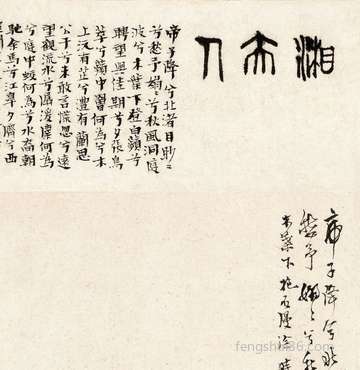 湘夫人
帝子降兮北渚目眇〻
兮愁予嫋〻兮秋風洞庭
波兮木葉下登白蘋兮
騁望與佳期兮夕張鳥
萃兮蘋中罾何為兮木
上沅有芷兮澧有蘭思
公子兮未敢言慌忽兮遠
望觀流水兮潺湲麋何為
兮庭中蛟何為兮水裔朝
馳余馬兮江皋夕濟兮西
帝子降兮北
愁予嫋〻兮秋
木葉下
fengshui86.com